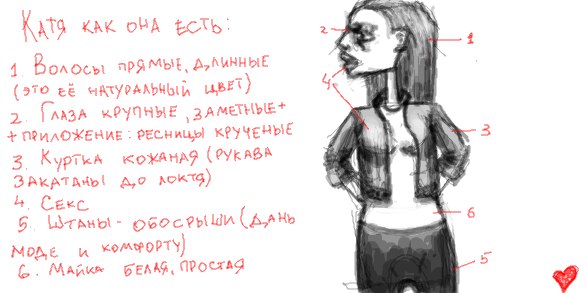 Катя как она есть:
1 Волосы прямые, длинные
(это её натуральный цвет)
2. Глаза крупные, заметные+
+приложение: ресницы крученые
3. Куртка кожаная (рукава
закатаны до локтя)
4. Секс
5. Штаны-обосрыши (дань
моде и комфорту)
6. Майка белая, простая
2
1
4
3
6
5